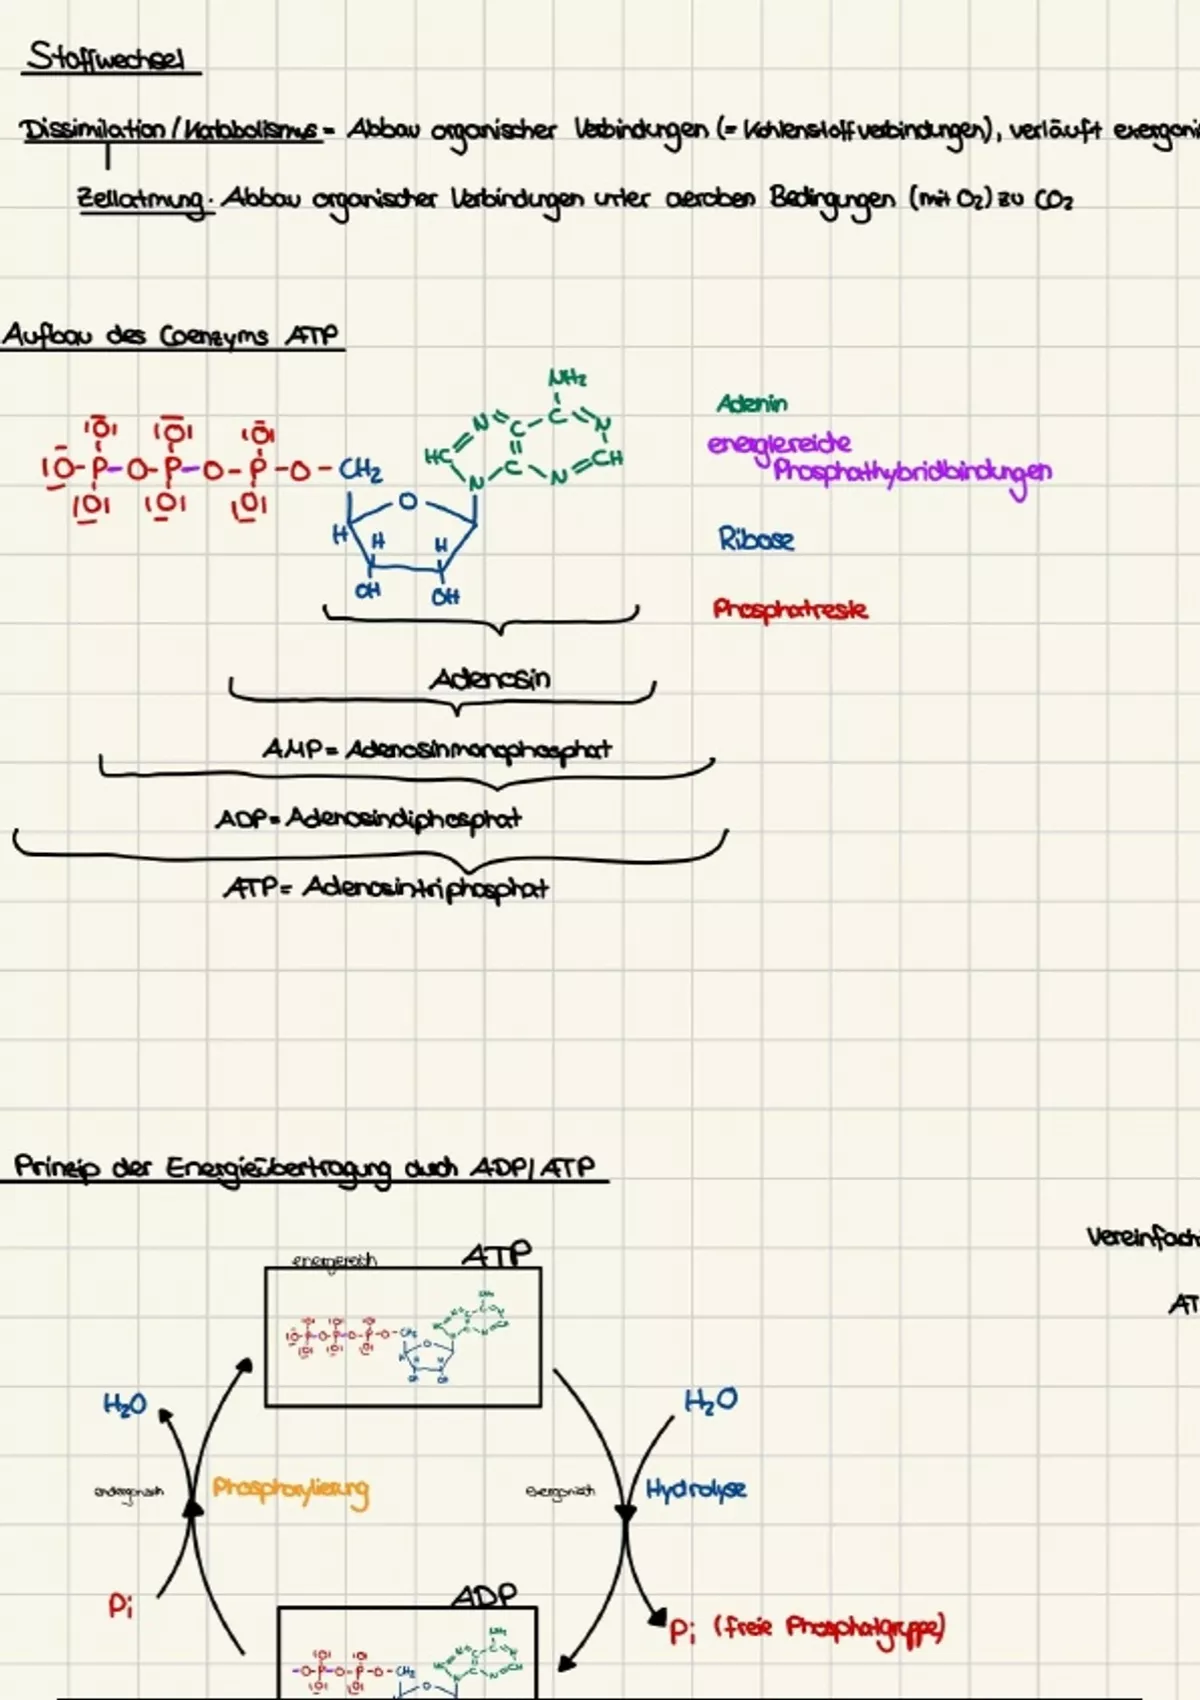 Stoffwechsel
Dissimilation / Katabolismus = Abbau organischer Verbindungen (= Kohlenstoffverbindungen), verläuft exergoni
Zellatmung: Abbau organischer Verbindungen unter aeroben Bedingungen (mit O₂) zu CO₂
Aufbau des Coenzyms ATP
NH₂
N C C N
HC C CH
N N
|O̅| |O̅| |O̅|
|O̅-P-O-P-O-P-O-CH₂
|O| |O| |O|
O
H H H
OH OH
Adenin
energiereiche
Phosphathybridbindungen
Ribose
Phosphatreste
Adenosin
AMP = Adenosinmonophosphat
ADP = Adenosindiphosphat
ATP = Adenosintriphosphat
Prinzip der Energieübertragung durch ADP/ATP
Vereinfach
AT
energiereich ATP
H₂O H₂O
endergonisch Phosphorylierung exergonisch Hydrolyse
Pi ADP Pi (freie Phosphatgruppe)